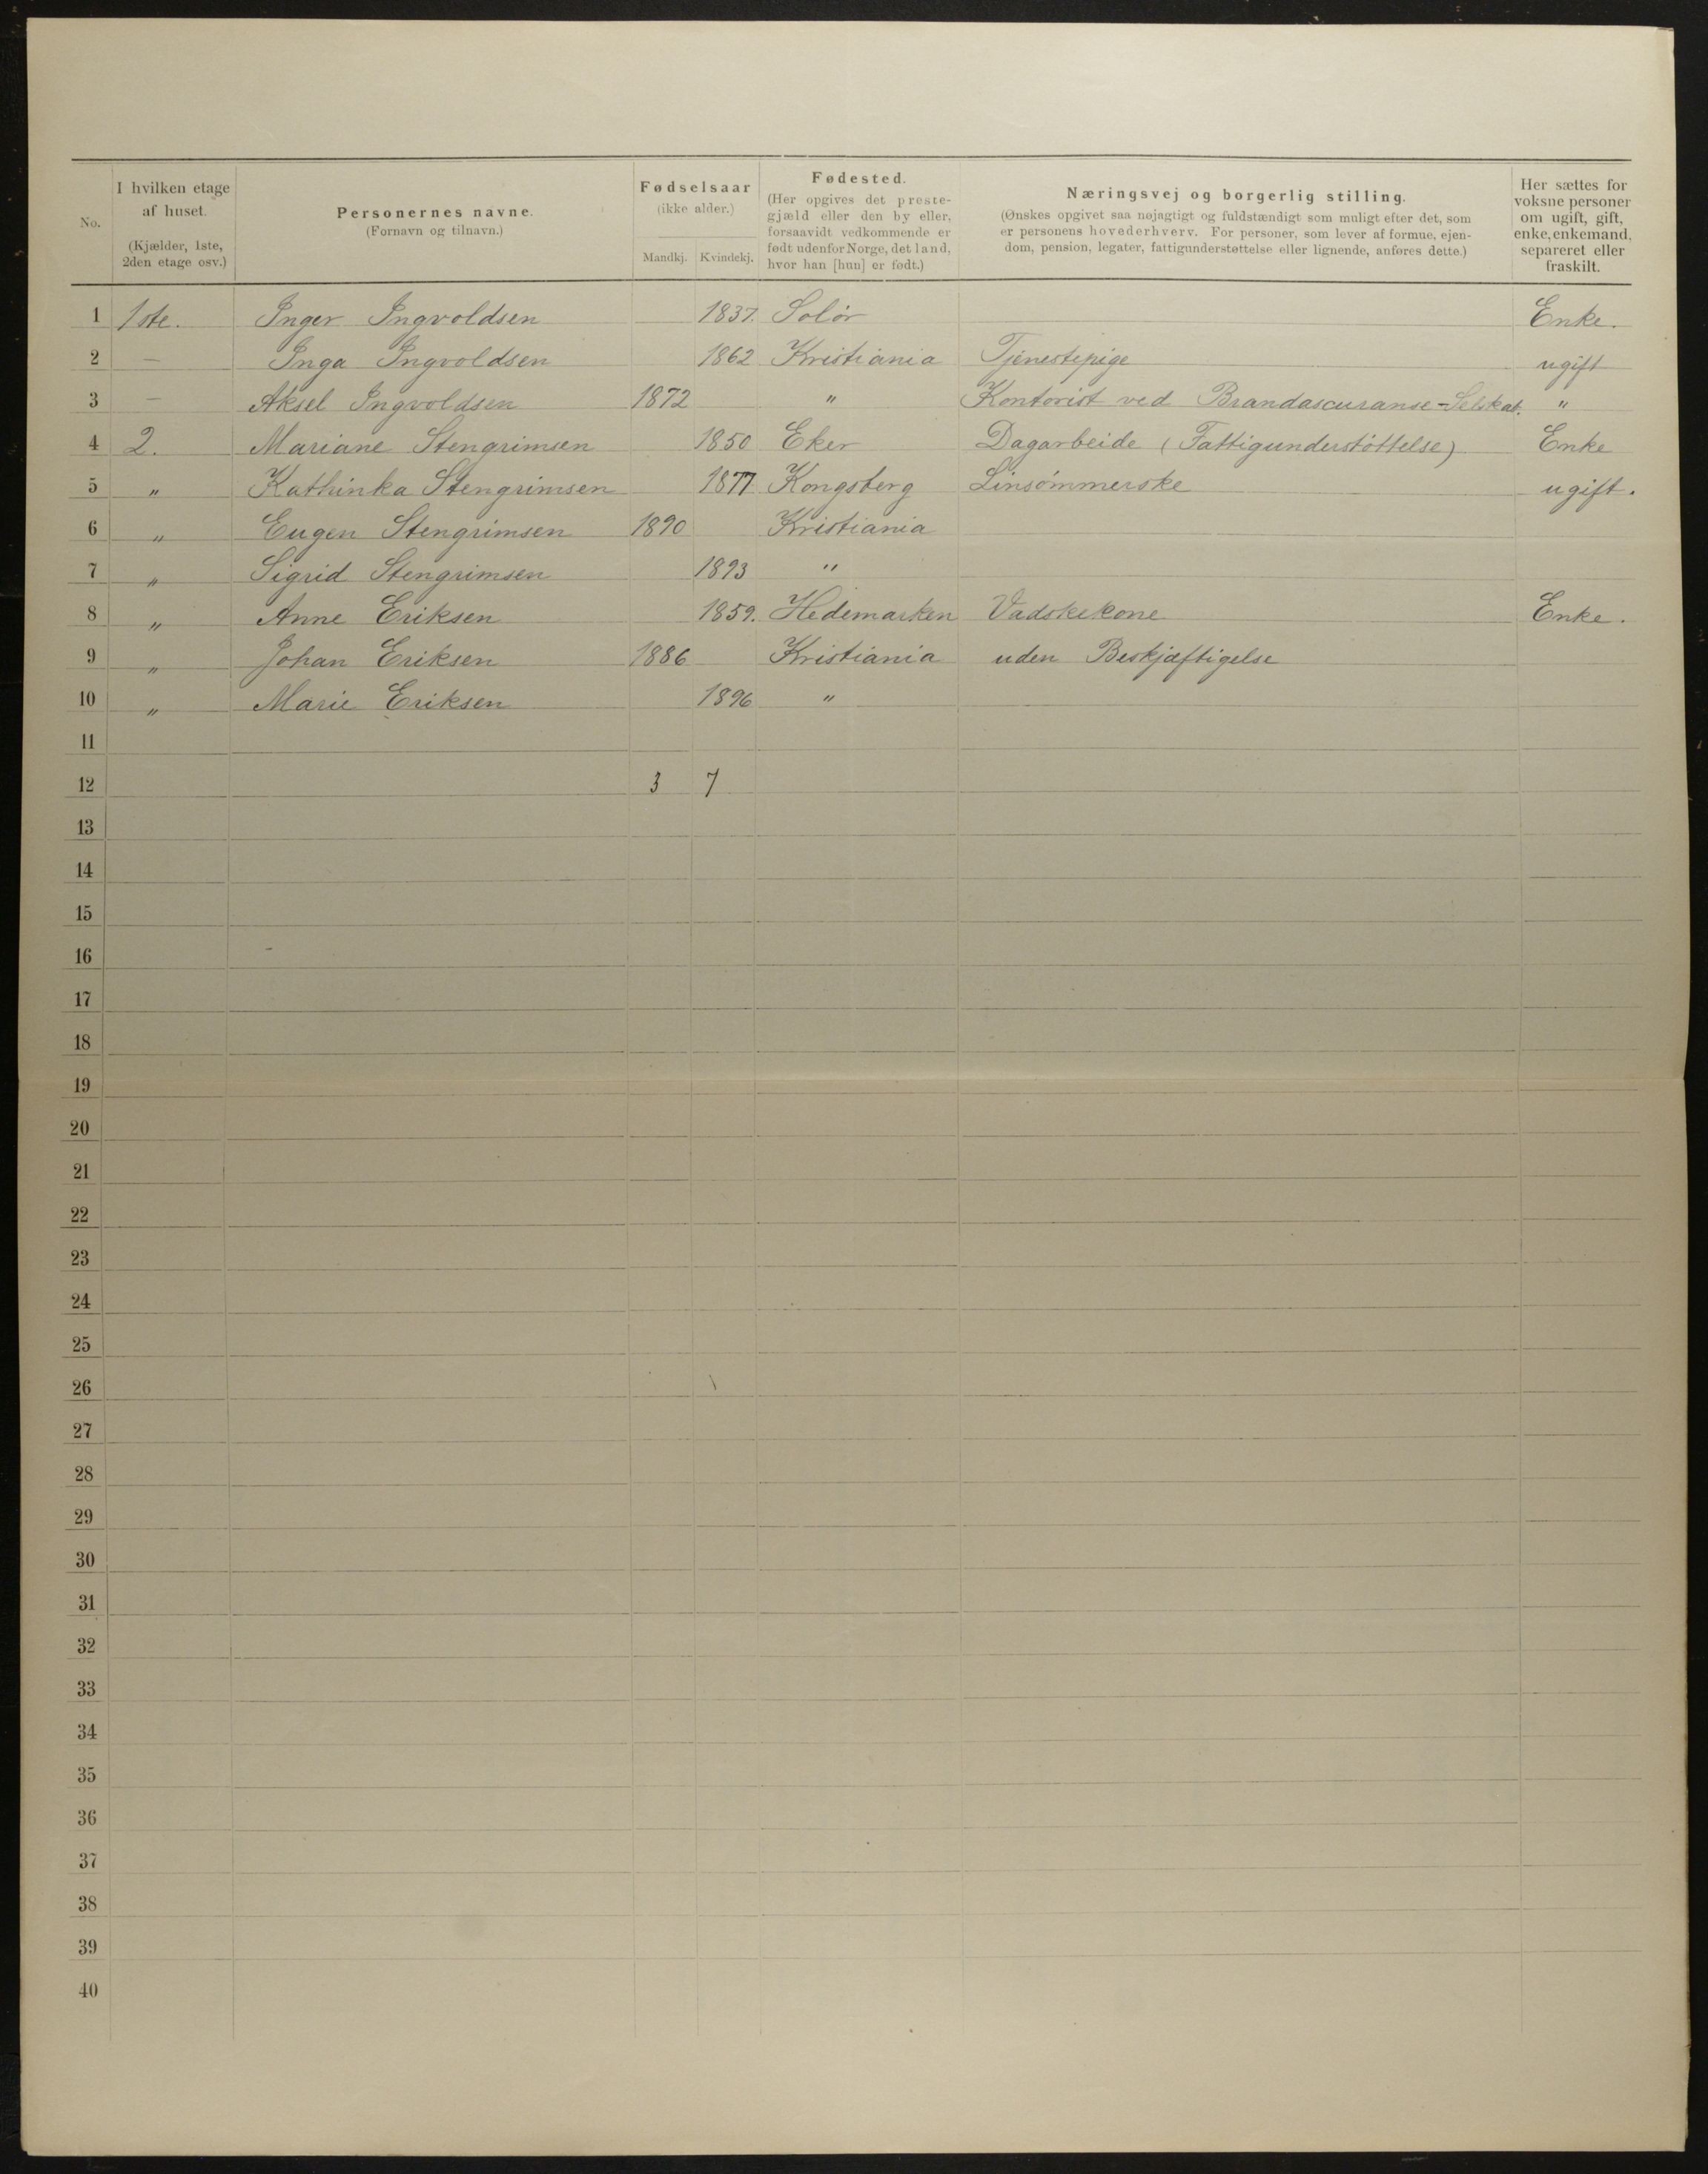 No.
I hvilken etage af huset. (Kjælder, 1ste, 2den etage osv.)
Personernes navne. (Fornavn og tilnavn.)
Fødselsaar (ikke alder.) Mandkj. Kvindekj.
Fødested. (Her opgives det prestegjæld eller den by eller, forsaavidt vedkommende er født udenfor Norge, det land, hvor han [hun] er født.)
Næringsvej og borgerlig stilling. (Ønskes opgivet saa nøjagtigt og fuldstændigt som muligt efter det, som er personens hovederhverv. For personer, som lever af formue, ejendom, pension, legater, fattigunderstøttelse eller lignende, anføres dette.)
Her sættes for voksne personer om ugift, gift, enke, enkemand, separeret eller fraskilt.
1 1ste. Inger Ingvoldsen 1837. Solör Enke.
2 — Inga Ingvoldsen 1862 Kristiania Tjenestepige ugift
3 — Aksel Ingvoldsen 1872 " Kontorist ved Brandascuranse-Selskab. "
4 2. Mariane Stengrimsen 1850 Eker Dagarbeide (Fattigunderstöttelse) Enke
5 " Kathinka Stengrimsen 1877 Kongsberg Linsømmerske ugift.
6 " Eugen Stengrimsen 1890 Kristiania
7 " Sigrid Stengrimsen 1893 "
8 " Anne Eriksen 1859. Hedemarken Vadskekone Enke.
9 " Johan Eriksen 1886 Kristiania uden Beskjæftigelse
10 " Marie Eriksen 1896 "
11
12 3 7
13
14
15
16
17
18
19
20
21
22
23
24
25
26
27
28
29
30
31
32
33
34
35
36
37
38
39
40